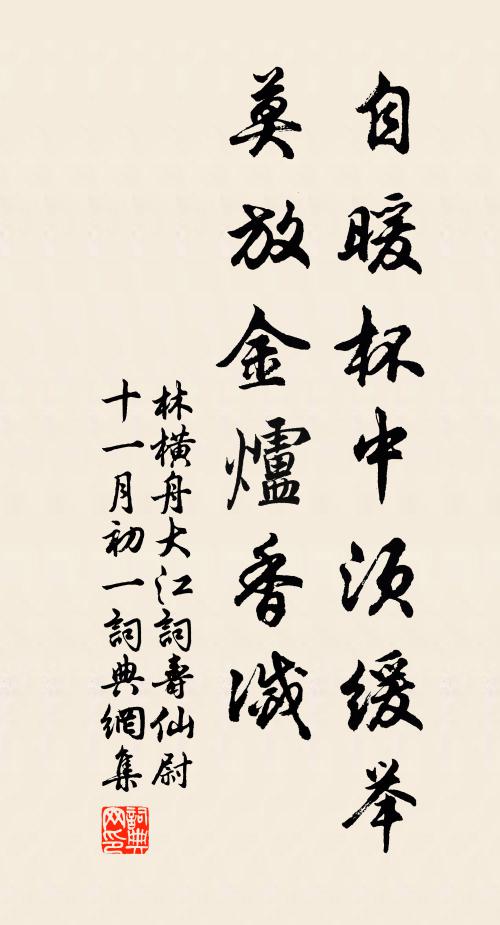 自暖杯中須缓举
莫放金爐香減
林橫舟大江詞壽仙尉
十一月初一詞典網集
詞典
网印